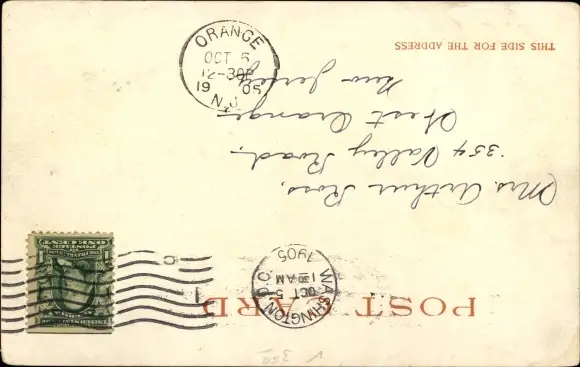 POST CARD
WASHINGTON, D.C.
OCT 5
1 30 AM
1905
ONE CENT
1
1
THIS SIDE FOR THE ADDRESS
Mrs. Arthur Ross,
354 Valley Road,
West Orange
New Jersey
ORANGE
OCT 5
12-30P
1905
N.J.